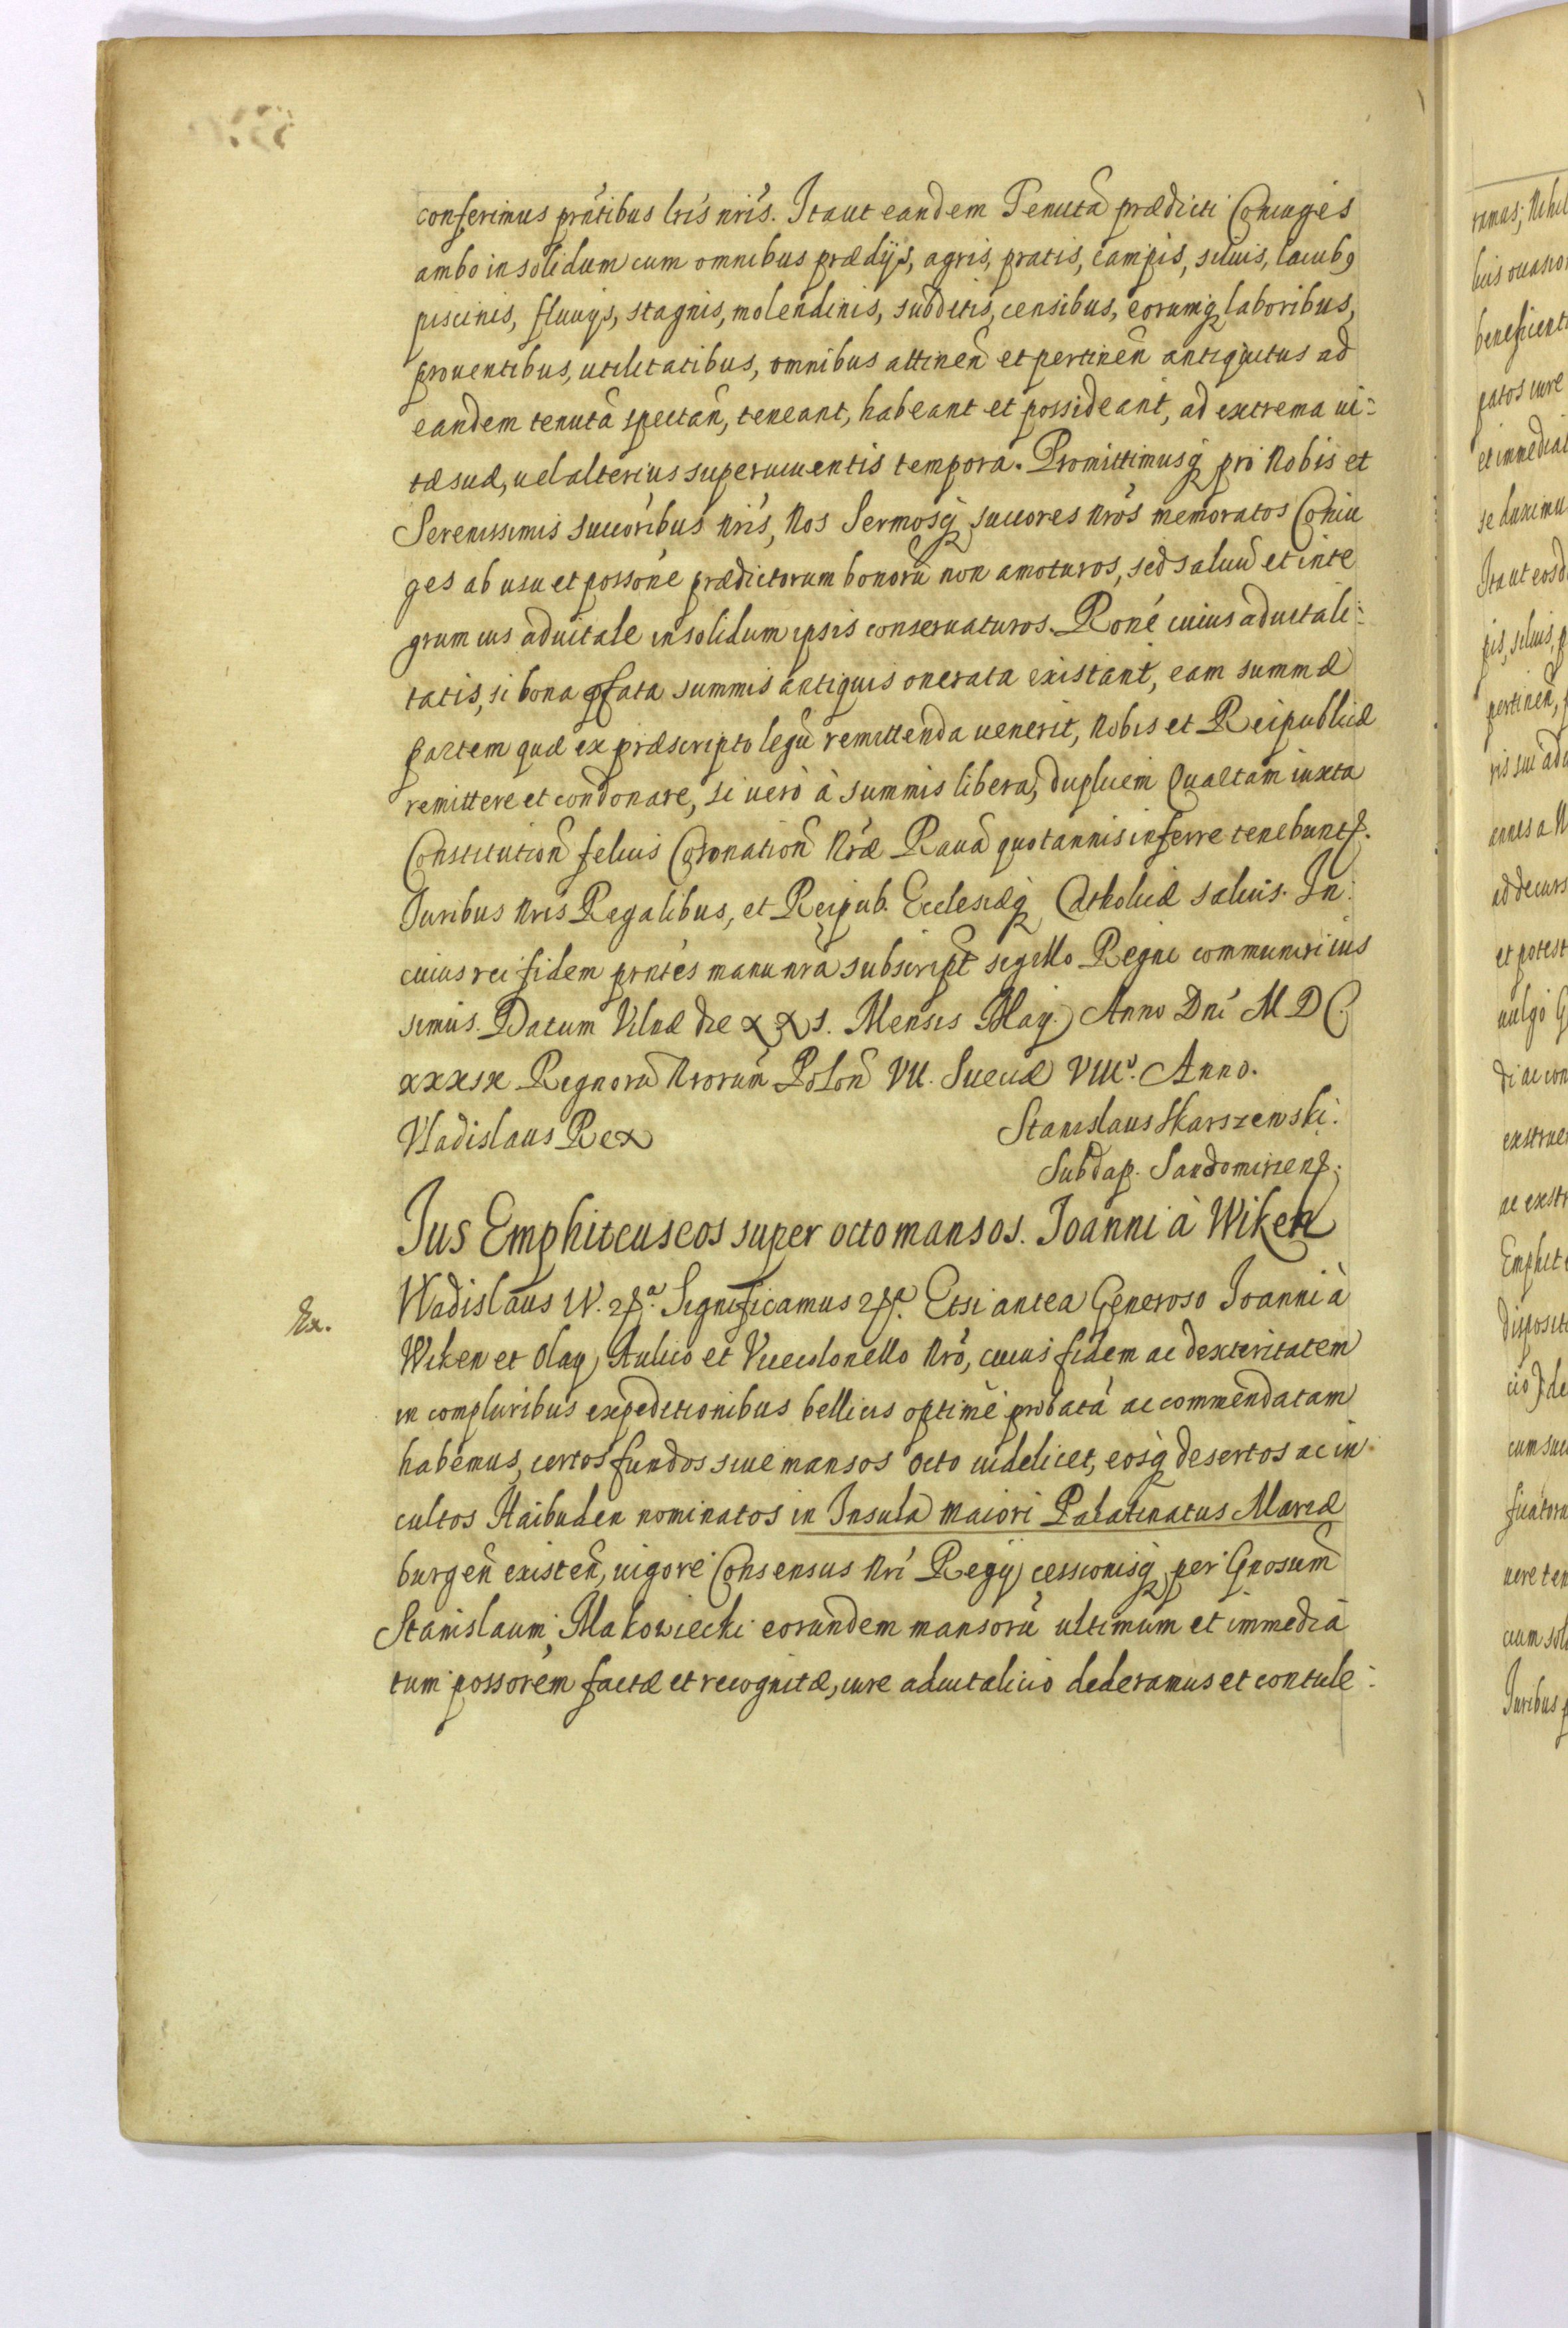 conferimus prñtibus lris nris. Itaut eandem Tenutã prædicti Coniuges
ambo insolidum cum omnibus prædijs, agris, pratis, campis, siluis, lacubꝯ
piscinis, fluuijs, stagnis, molendinis, subditis, censibus, eorumqꝫ laboribus,
prouentibus, utilitatibus, omnibus attineñ et pertineñ antiquitus ad
eandem tenutã spectañ, teneant, habeant et possideant, ad extrema ui-
tæ suæ, uel alterius superuiuentis tempora. Promittimusqꝫ pro Nobis et
Serenissimis succoribus nris, Nos Sermosqꝫ succores nros memoratos Coniu
ges ab usu et possone prædictorum bonorũ non amoturos, sed saluũ et inte
grum ius aduitale insolidum ipsis conseruaturos. Rone cuius aduitali-
tatis, si bona pfata summis antiquis onerata existant, eam summæ
partem quæ ex præscripto legũ remittenda uenerit, Nobis et Reipublicæ
remittere et condonare, si uerò à summis libera, duplicem Quartam iuxta
Constitutioñ felicis Coronatioñ Nræ Rauã quotannis inferre tenebuntr.
Iuribus Nris Regalibus, et Reipub. Ecclesiæqꝫ Catholicæ saluis. In
cuius rei fidem prntes manu nra subscript sigillo Regni communiri ius
simus. Datum Vilnæ die XXI. Mensis Maij Anno Dni M D C
XXXIX Regnorũ Nrorum Poloñ VII. Sueciæ VIIIº. Anno.
Vladislaus Rex
Stanislaus Skarszewski
Subdap. Sandomirienß.
Ius Emphiteuseos super octo mansos. Joanni à Wiken
Ex.
Wladislaus IV. 2ſª. Significamus 2ſª. Etsi antea Generoso Ioanni à
Wiken et Olaij Aulico et Vicecolonello Nro, cuius fidem ac dexteritatem
in compluribus expeditionibus bellicis optimè probatã ac commendatam
habemus, certos fundos siue mansos octo uidelicet, eosqꝫ desertos ac in
cultos Haibuden nominatos in Insula Maiori Palatinatus Mariæ
burgeñ existeñ, uigore Consensus Nri Regij cessionisqꝫ per Gnosum
Stanislaum Makowiecki eorundem mansorũ ultimum et immedia
tum possorem factæ et recognitæ, iure aduitalicio dederamus et contule-